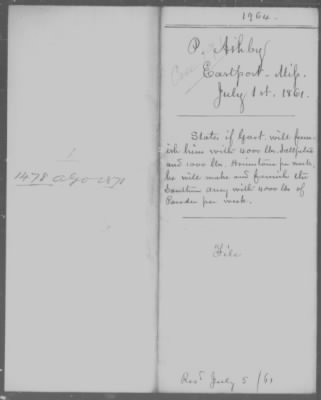 1964.
P. Ashby
Eastport. Miss.
July 1st. 1861.
States if Govt. will furn-
ish him with 4000 lbs. Saltpetre
and 1000 lbs. Brimstone per week,
he will make and furnish the
Southern Army with 4000 lbs of
Powder per week.
File
Recd July 5 /61
1
1478 A.G.O. 1871